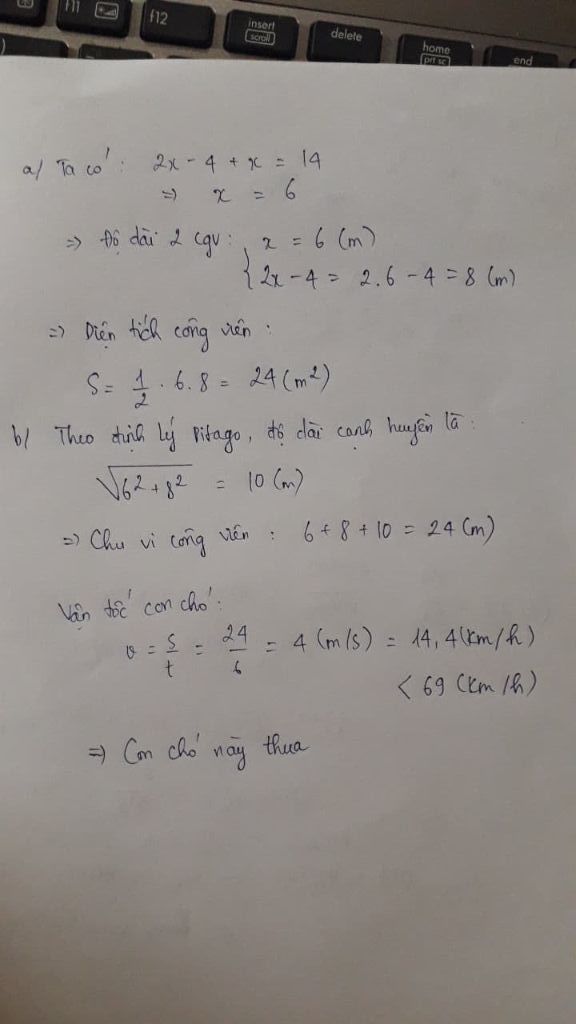 f11
f12
insert
scroll
delete
home
prt sc
end
a/ Ta có: 2x - 4 + x = 14
=> x = 6
=> Độ dài 2 cgv: x = 6 (m)
2x - 4 = 2.6 - 4 = 8 (m)
=> Diện tích công viên:
S = 1/2 . 6.8 = 24 (m²)
b/ Theo định lý Pitago, độ dài cạnh huyền là:
√6² + 8² = 10 (m)
=> Chu vi công viên: 6 + 8 + 10 = 24 (m)
Vận tốc con chó:
v = s/t = 24/6 = 4 (m/s) = 14,4 (km/h)
< 69 (km/h)
=> Con chó này thua